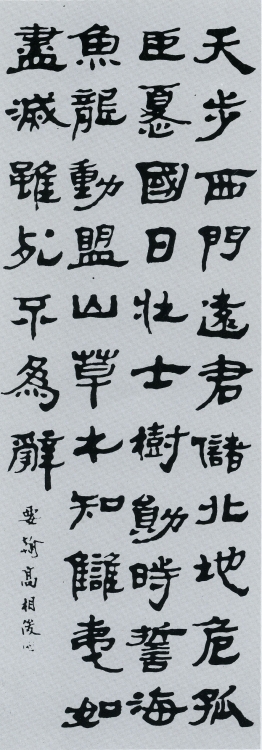 天步西門遠君儲北地危孤
臣憂國日壯士樹勛時誓海
魚龍動盟山草木知讎夷如
盡滅雖死不為辭
高相